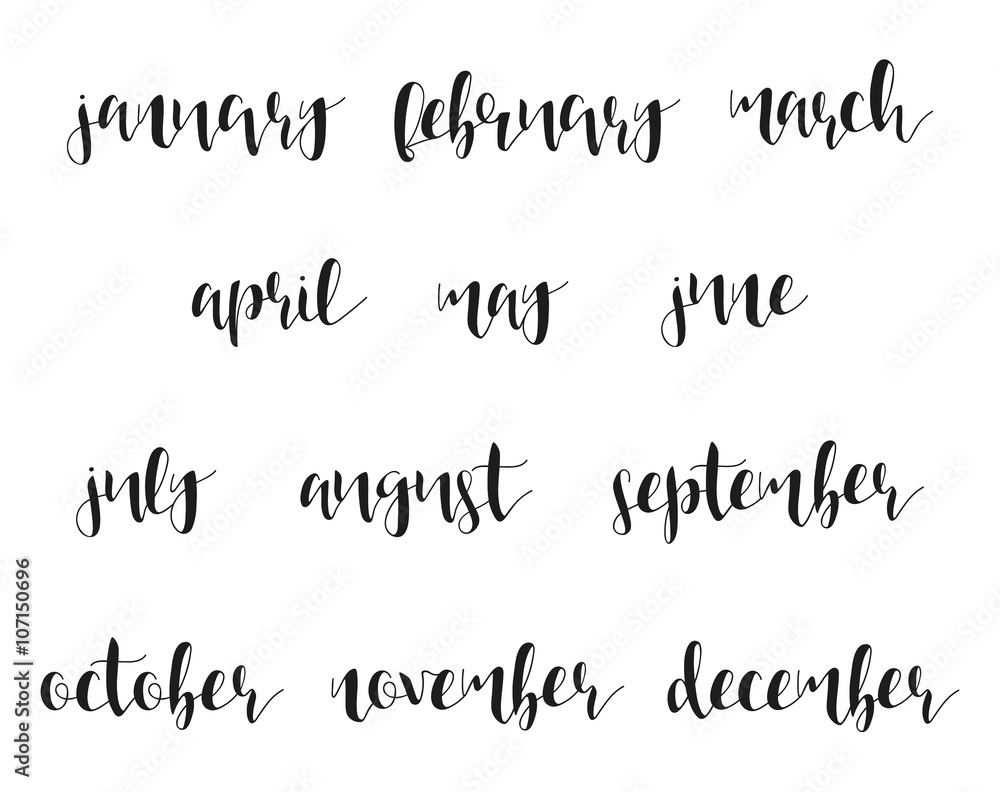 january february march
april may june
july august september
october november december
Adobe Stock | #107150696